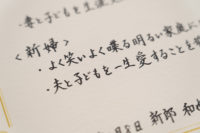 ・妻と子どもを一生
〈新婦〉
・よく笑いよく喋る明るい家庭に
・夫と子どもを一生愛することを
月8日 新郎 和